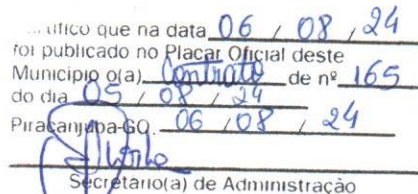 tifico que na data 06 / 08 / 24
foi publicado no Placar Oficial deste
Município o(a) Contrato de nº 165
do dia 05 / 08 / 24
Piracanjuba-GO. 06 / 08 / 24
Secretário(a) de Administração